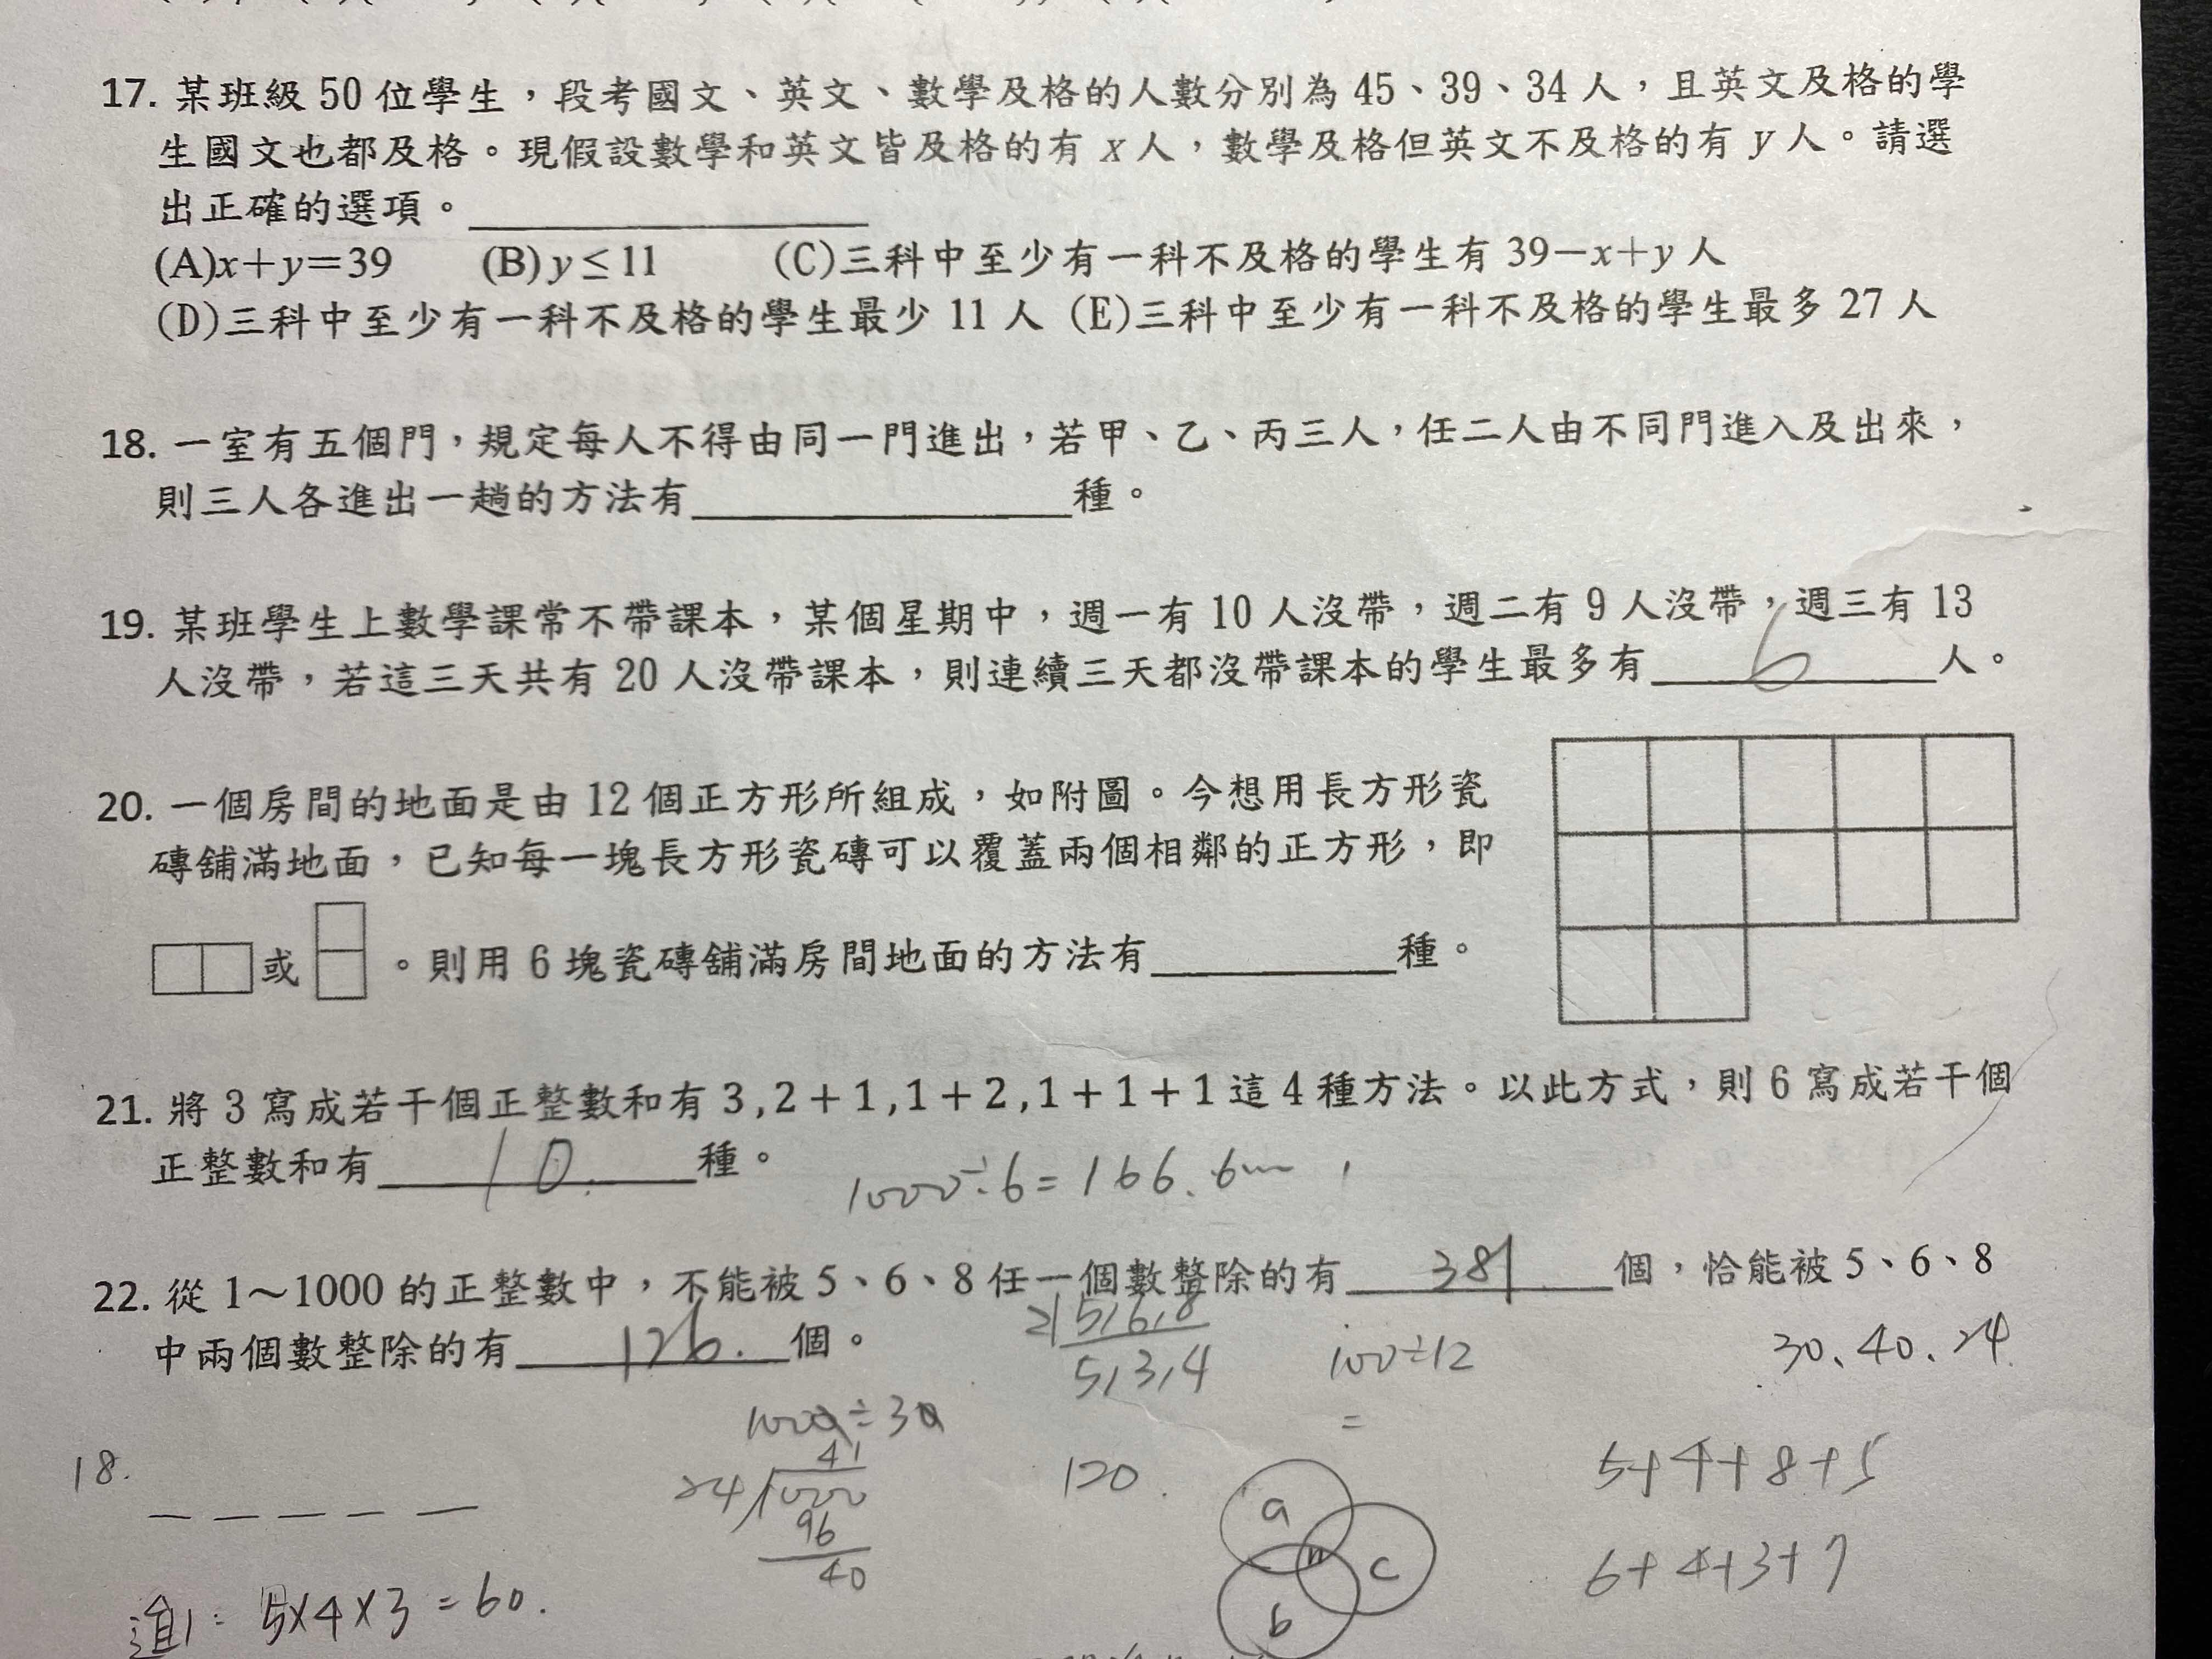 17. 某班級 50 位學生，段考國文、英文、數學及格的人數分別為 45、39、34 人，且英文及格的學
生國文也都及格。現假設數學和英文皆及格的有 x 人，數學及格但英文不及格的有 y 人。請選
出正確的選項。
(A)x＋y＝39 (B)y≤11 (C)三科中至少有一科不及格的學生有 39－x＋y 人
(D)三科中至少有一科不及格的學生最少 11 人 (E)三科中至少有一科不及格的學生最多 27 人
18. 一室有五個門，規定每人不得由同一門進出，若甲、乙、丙三人，任二人由不同門進入及出來，
則三人各進出一趟的方法有 種。
19. 某班學生上數學課常不帶課本，某個星期中，週一有 10 人沒帶，週二有 9 人沒帶，週三有 13
人沒帶，若這三天共有 20 人沒帶課本，則連續三天都沒帶課本的學生最多有 6 人。
20. 一個房間的地面是由 12 個正方形所組成，如附圖。今想用長方形瓷
磚舖滿地面，已知每一塊長方形瓷磚可以覆蓋兩個相鄰的正方形，即
或 。則用 6 塊瓷磚舖滿房間地面的方法有 種。
21. 將 3 寫成若干個正整數和有 3,2＋1,1＋2,1＋1＋1 這 4 種方法。以此方式，則 6 寫成若干個
正整數和有 10. 種。
1000÷6=166.6
22. 從 1～1000 的正整數中，不能被 5、6、8 任一個數整除的有 381 個，恰能被 5、6、8
中兩個數整除的有 126. 個。
2 5,6,8
5,3,4
100÷12
=
30、40、24
1000÷30
41
24 1000
96
40
120.
a
c
n
b
5+4+8+5
6+4+3+7
18.
進: 5×4×3=60.